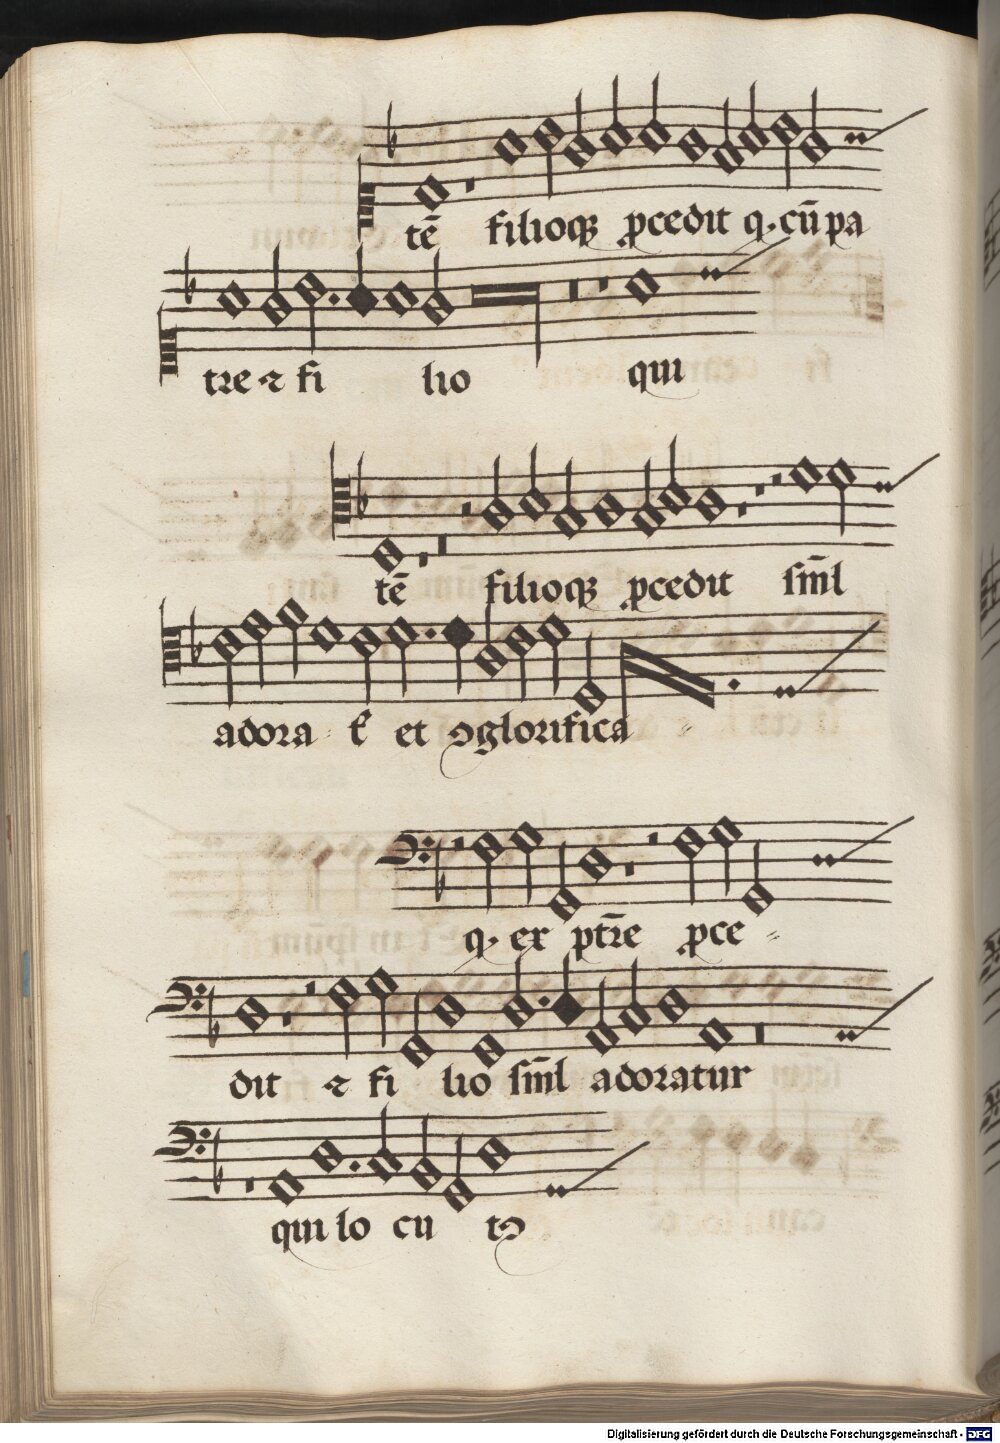 tẽ filioqꝫ ꝓcedit q. cũ pa
tre ⁊ fi lio qui
tẽ filioqꝫ ꝓcedit sim̃l
adora t᷑ et ꝯglorifica
q. ex ptr̃e ꝓce
dit ⁊ fi lio sim̃l adoratur
qui lo cu tꝰ
Digitalisierung gefördert durch die Deutsche Forschungsgemeinschaft - DFG